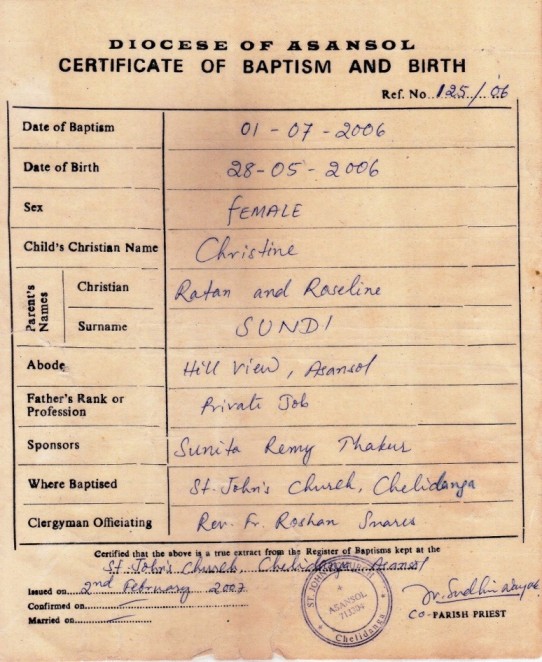 DIOCESE OF ASANSOL
CERTIFICATE OF BAPTISM AND BIRTH
Ref. No. 125/06
Date of Baptism 01-07-2006
Date of Birth 28-05-2006
Sex FEMALE
Child's Christian Name Christine
Parent's Names
Christian Ratan and Roseline
Surname SUNDI
Abode Hill View, Asansol
Father's Rank or Profession Private Job
Sponsors Sunita Remy Thakur
Where Baptised St. John's Church, Chelidanga
Clergyman Officiating Rev. Fr. Roshan
Certified that the above is a true extract from the Register of Baptisms kept at the
St. John's Church, Chelidanga Asansol
Issued on 2nd February 2007
Confirmed on
Married on
ST. JOHN'S CHURCH
ASANSOL
Chelidanga
CO-PARISH PRIEST